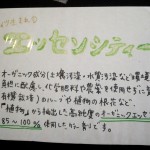 クエッセンシティー
オーガニック成分(土壌汚染・水質汚染など環境
負担に配慮し、化学肥料や農薬を使用せずに
有機栽培)のハーブや植物の根など、
"植物"から抽出した高純度のオーガニックエッセンス
85~100%使用したカラー剤です。